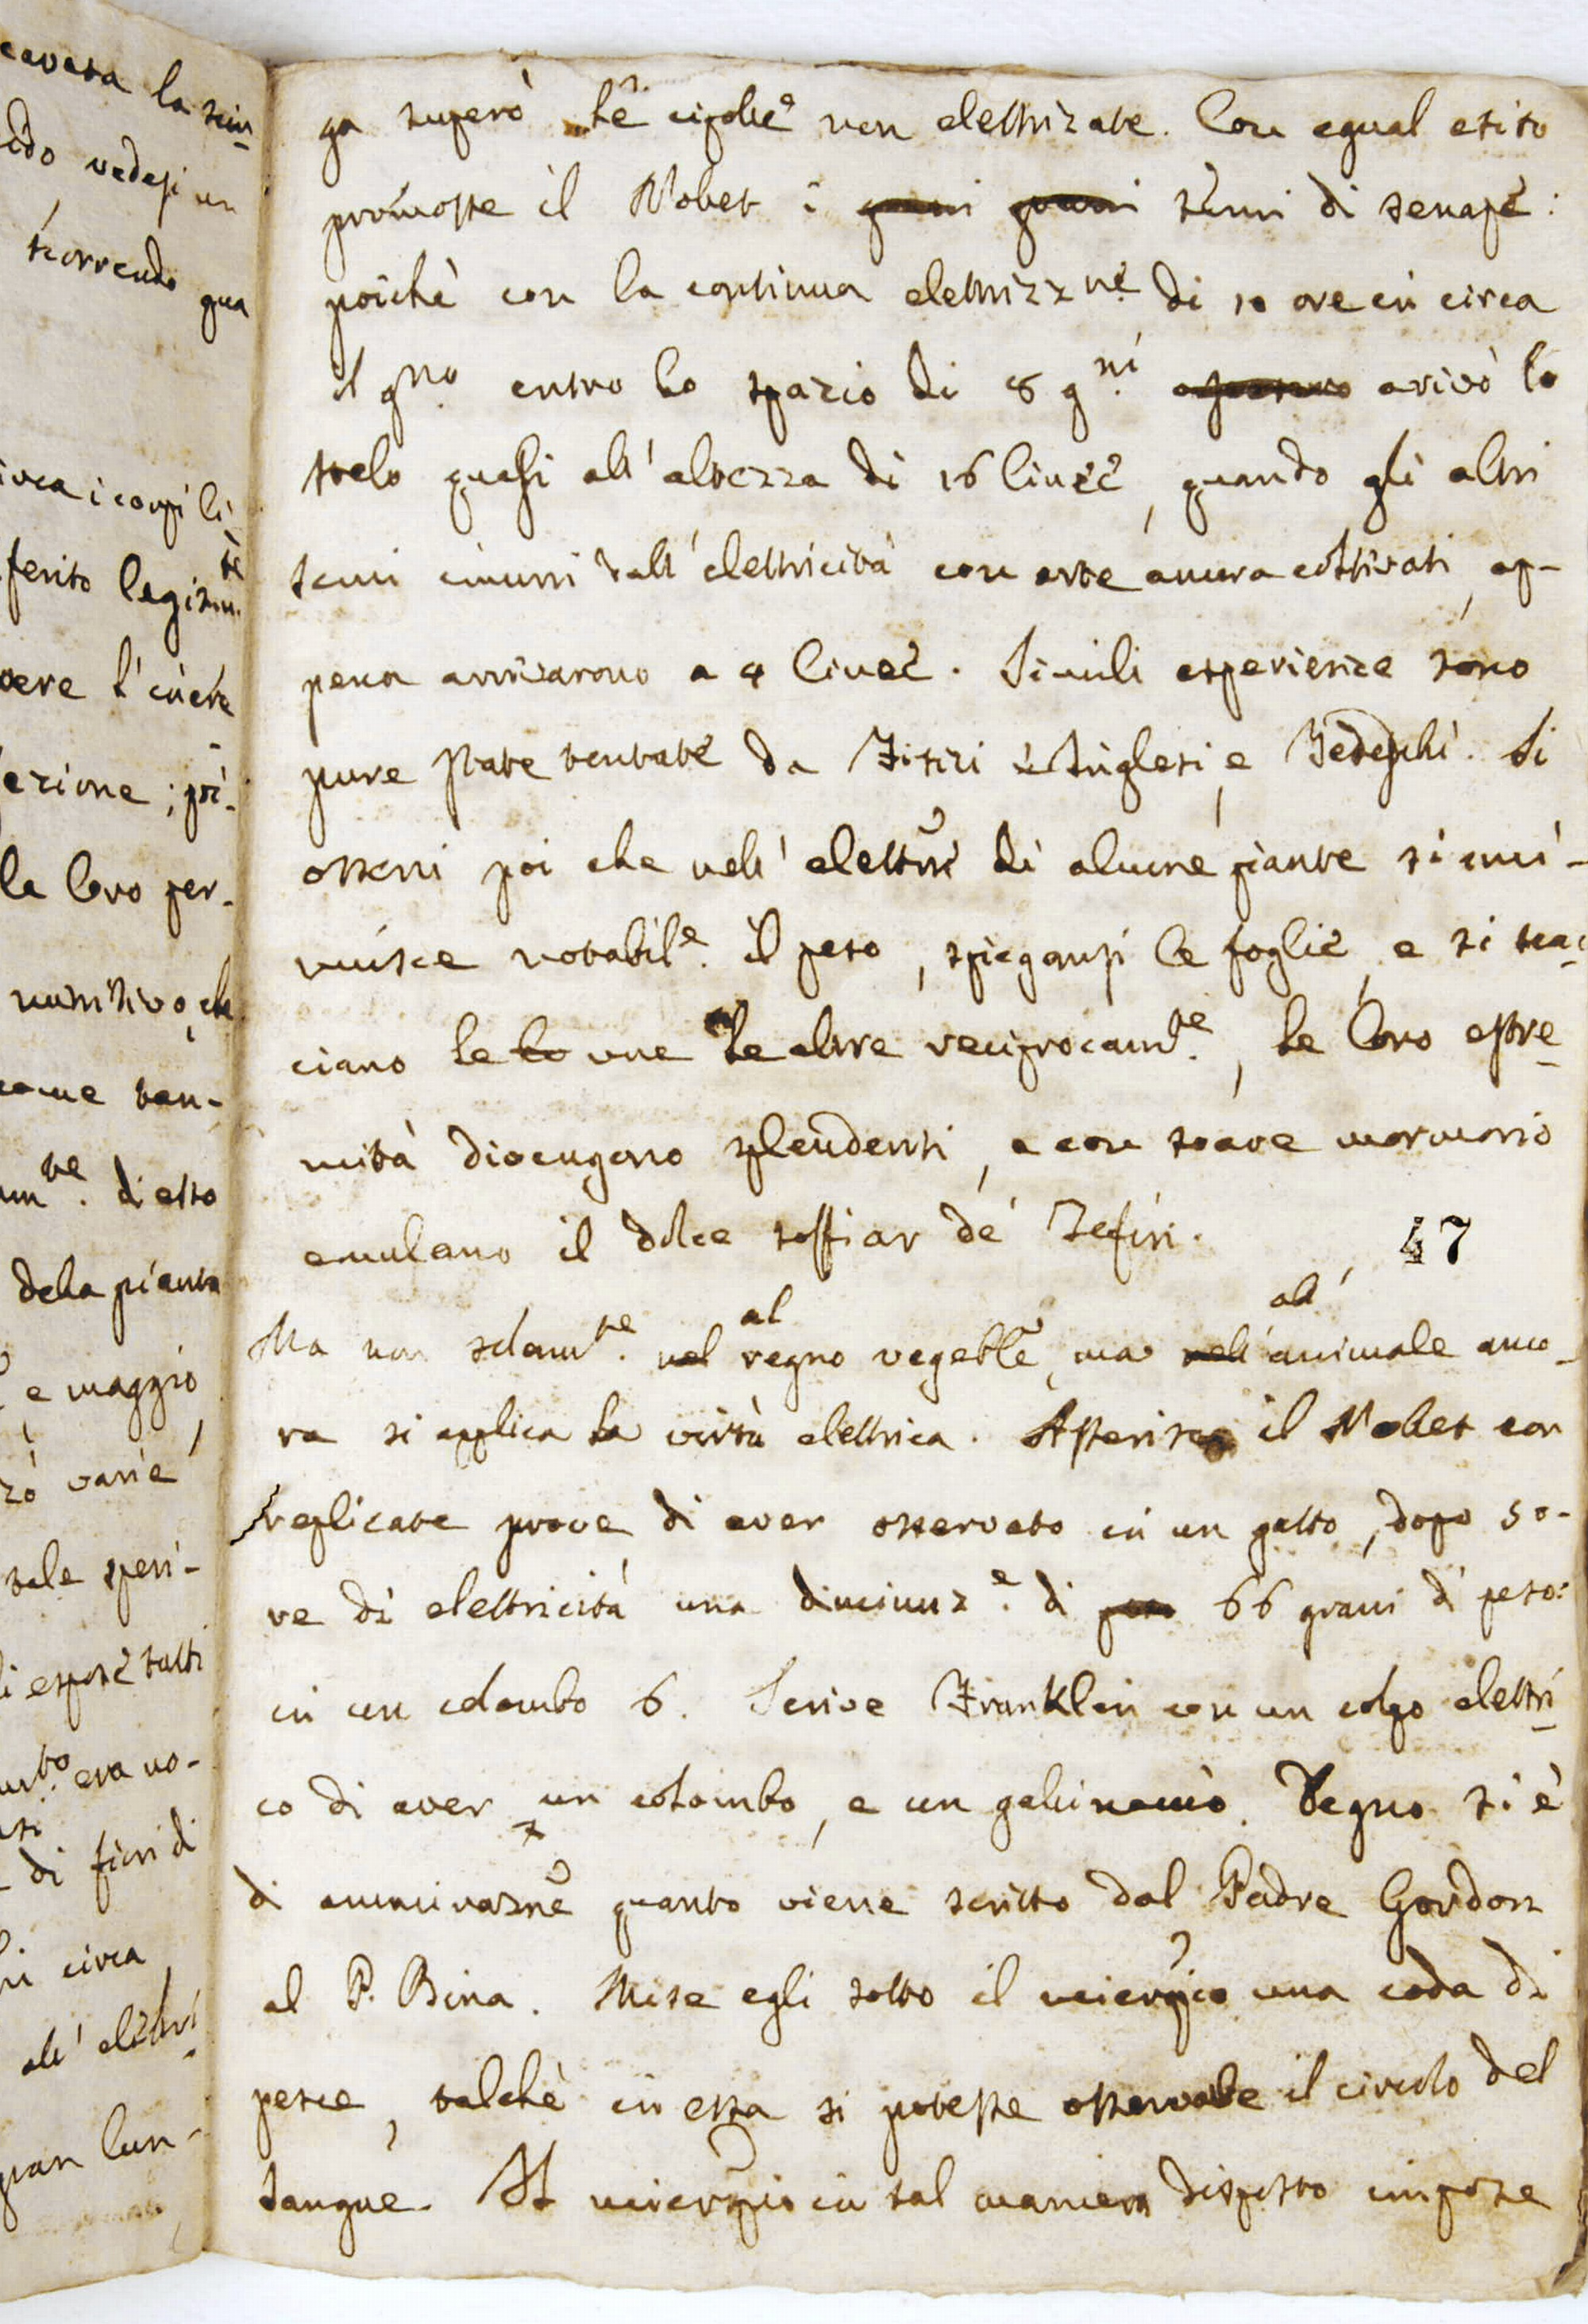 cavata la scin-
vedesi un
scorrendo qua
circa i corpi li-
ferito legitim.te
vere l'incre
ezione; poi-
la loro per-
nutritivo, che
come tan-
te. di esso
della pianta
e maggio
zò varie
tale speri-
espose tutti
era no-
di fiori di
circa
all' elettri
gran lun-
ga superò le cipolle non elettrizate. Con egual esito
promosse il Nolet i grani grani semi di senape:
poichè con la continua elettrizzne. di 10 ore in circa
il gno. entro lo spazio di 8 gni. arivò lo
stelo quasi all'altezza di 16 linee, quando gli altri
semi immuni dall'elettricità con arte ancora coltivati, ap-
pena arrivarono a 4 linee. Simili esperienze sono
pure state tentate da Fisici Inglesi, e Tedeschi. Si
osservi poi che nell' elettrne di alcune piante si imi-
nuisce notabile. il peso, spiegansi le foglie, e si scac
ciano le lo une le altre reciprocamte., le loro estre
mità divengono splendenti, e con soave mormorio
emulano il dolce soffiar de' Zefiri.
47
Ma non solamte. nel al regno vegetble, ma nell' all' animale anco-
ra si applica la virtù elettrica. Asserisce il Nolet con
replicate prove di aver osservato in un gatto, dopo 5 o-
re di elettricità una diminuze. di 66 grani di peso:
in un colombo 6. Scrive Franklin con un colpo elettri
co di aver x un colombo, e un gallinaccio. Degno si è
di ammirazne quanto viene scritto dal Padre Gordon
al P. Bina. Mise egli sotto il micrpio una coda di
pesce, talchè in essa si potesse osservare il circolo del
sangue. Al micrspio in tal maniera disposto impose